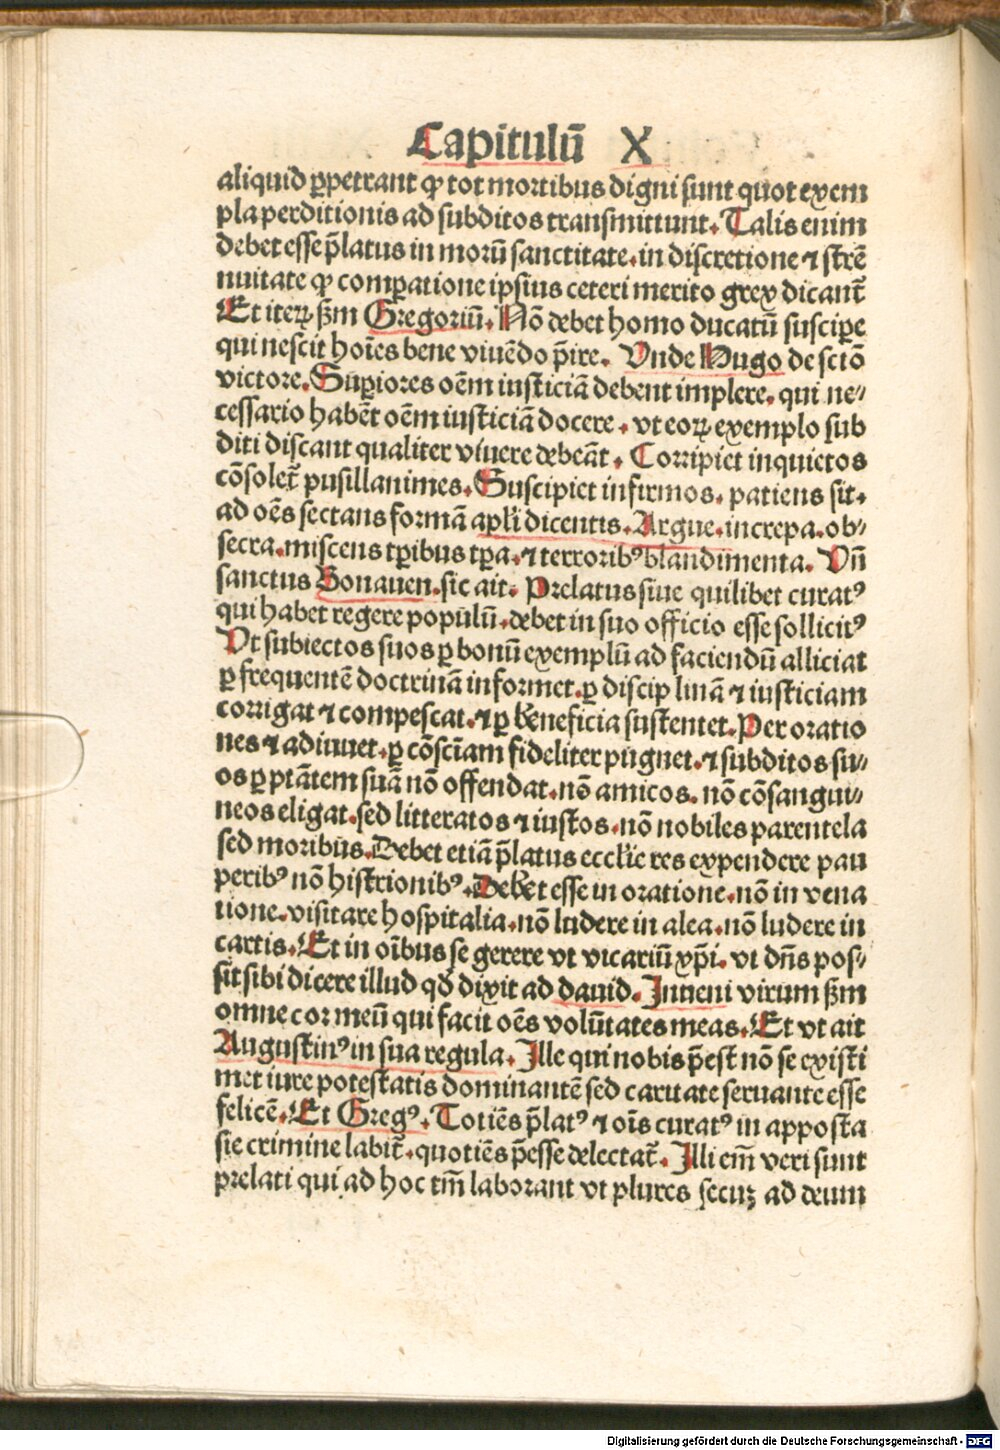 Capitulū X
aliquid ꝑpetrant ꝙ tot mortibus digni sunt quot exem
pla perditionis ad subditos transmittunt. Talis enim
debet esse p̄latus in morū sanctitate. in discretione ⁊ strē
nuitate ꝙ comꝑatione ipsius ceteri merito grex dicant̄
Et iteꝝ ẜm Gregoriū. Nō debet homo ducatū susciꝑe
qui nescit hoīes bene viuēdo p̄ire. Vnde Hugo de sctō
victore. Suꝑiores oēm iusticiā debent implere. qui ne⸗
cessario habēt oēm iusticiā docere. vt eoꝝ exemplo sub
diti discant qualiter viuere debeāt. Corripiet inquietos
cōsolet̄ pusillanimes. Suscipiet infirmos. patiens sit.
ad oēs sectans formā apl'i dicentis. Argue. increpa. ob⸗
secra. miscens tꝑibus tꝑa. ⁊ terroribꝰ blandimenta. Vn̄
sanctus Bonauen. sic ait. Prelatus siue quilibet curatꝰ
qui habet regere populū. debet in suo officio esse sollicitꝰ
Vt subiectos suos ꝑ bonū exemplū ad faciendū alliciat
ꝑ frequentē doctrinā informet. ꝑ discip linā ⁊ iusticiam
corrigat ⁊ compescat. ⁊ ꝑ beneficia sustentet. Per oratio
nes ⁊ adiuuet. ꝑ cōsciam fideliter pugnet. ⁊ subditos su⸗
os ꝑ ptātem suā nō offendat. nō amicos. nō cōsangui⸗
neos eligat. sed litteratos ⁊ iustos. nō nobiles parentela
sed moribus. Debet etiā p̄latus eccl'ie res expendere pau
peribꝰ nō histrionibꝰ. Debet esse in oratione. nō in vena
tione. visitare hospitalia. nō ludere in alea. nō ludere in
cartis. Et in oībus se gerere vt vicariū xp̄i. vt dn̄s pos⸗
sit sibi dicere illud qd̄ dixit ad dauid. Inueni virum ẜm
omne cor meū qui facit oēs volūtates meas. Et vt ait
Augustinꝰ in sua regula. Ille qui nobis p̄est nō se existi
met iure potestatis dominantē sed caritate seruante esse
felicē. Et Gregꝰ. Totiēs p̄latꝰ ⁊ oīs curatꝰ in apposta
sie crimine labit̄. quotiēs p̄esse delectat̄. Illi em̄ veri sunt
prelati qui ad hoc tm̄ laborant vt plures secuꝫ ad deum
Digitalisierung gefördert durch die Deutsche Forschungsgemeinschaft - DFG